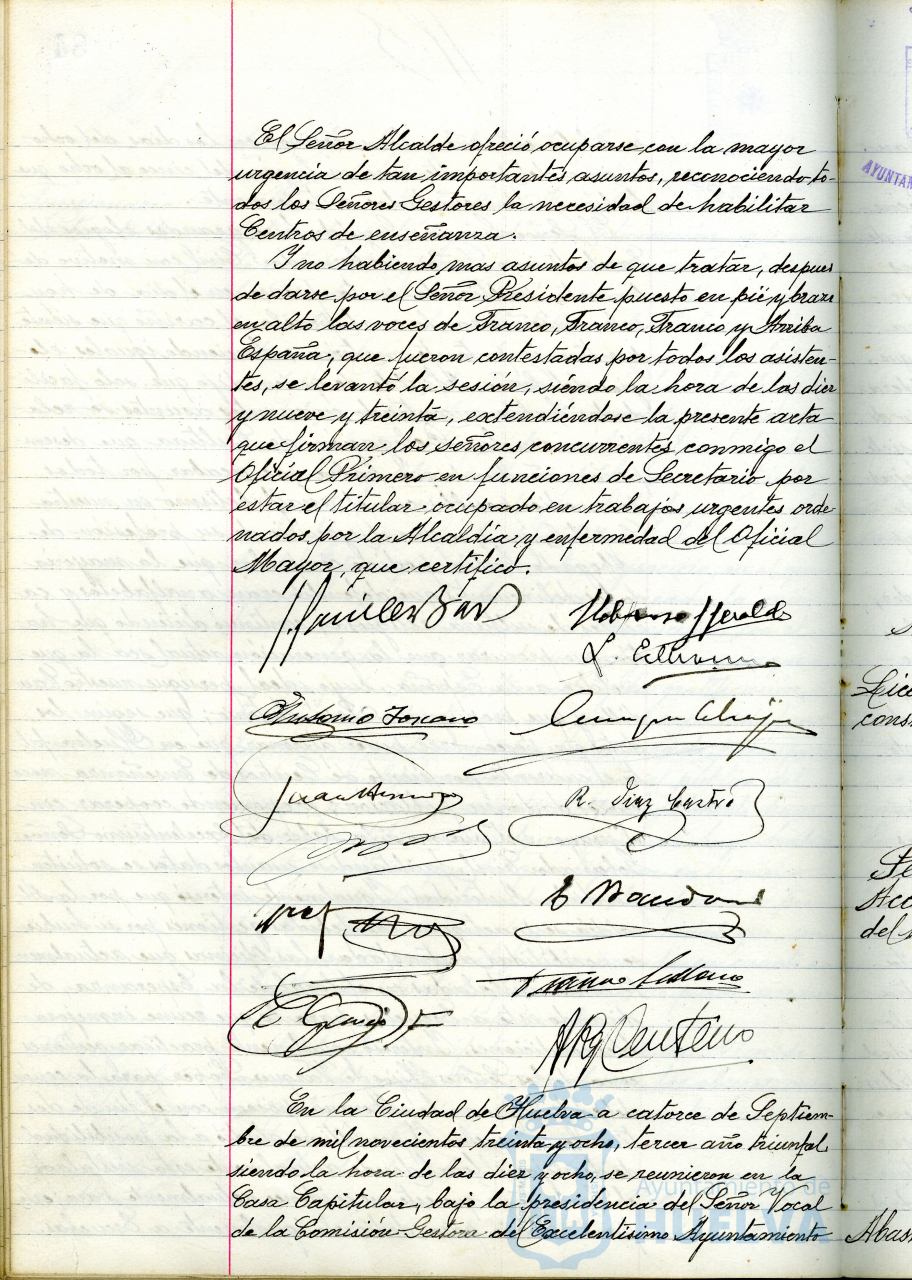 El Señor Alcalde ofreció ocuparse con la mayor
urgencia de tan importantes asuntos, reconociendo to-
dos los Señores Gestores la necesidad de habilitar
Centros de enseñanza.
Y no habiendo mas asuntos de que tratar, despues
de darse por el Señor Presidente puesto en pié y brazo
en alto las voces de Franco, Franco, Franco y Arriba
España, que fueron contestadas por todos los asisten-
tes, se levantó la sesión, siendo la hora de las diez
y nueve y treinta, extendiéndose la presente acta
que firman los señores concurrentes conmigo el
Oficial Primero en funciones de Secretario por
estar el titular ocupado en trabajos urgentes orde
nados por la Alcaldía y enfermedad del Oficial
Mayor, que certifico.
Antonio Toscano
R. Diaz Castro
En la Ciudad de Huelva a catorce de Septiem-
bre de mil novecientos treinta y ocho, tercer año triunfal
siendo la hora de las diez y ocho, se reunieron en la
Casa Capitular, bajo la presidencia del Señor Vocal
de la Comisión Gestora del Excelentísimo Ayuntamiento
Ayuntamiento de
HUELVA
AYUNTAM
Lice
cons
Pe
Acc
del
Abas